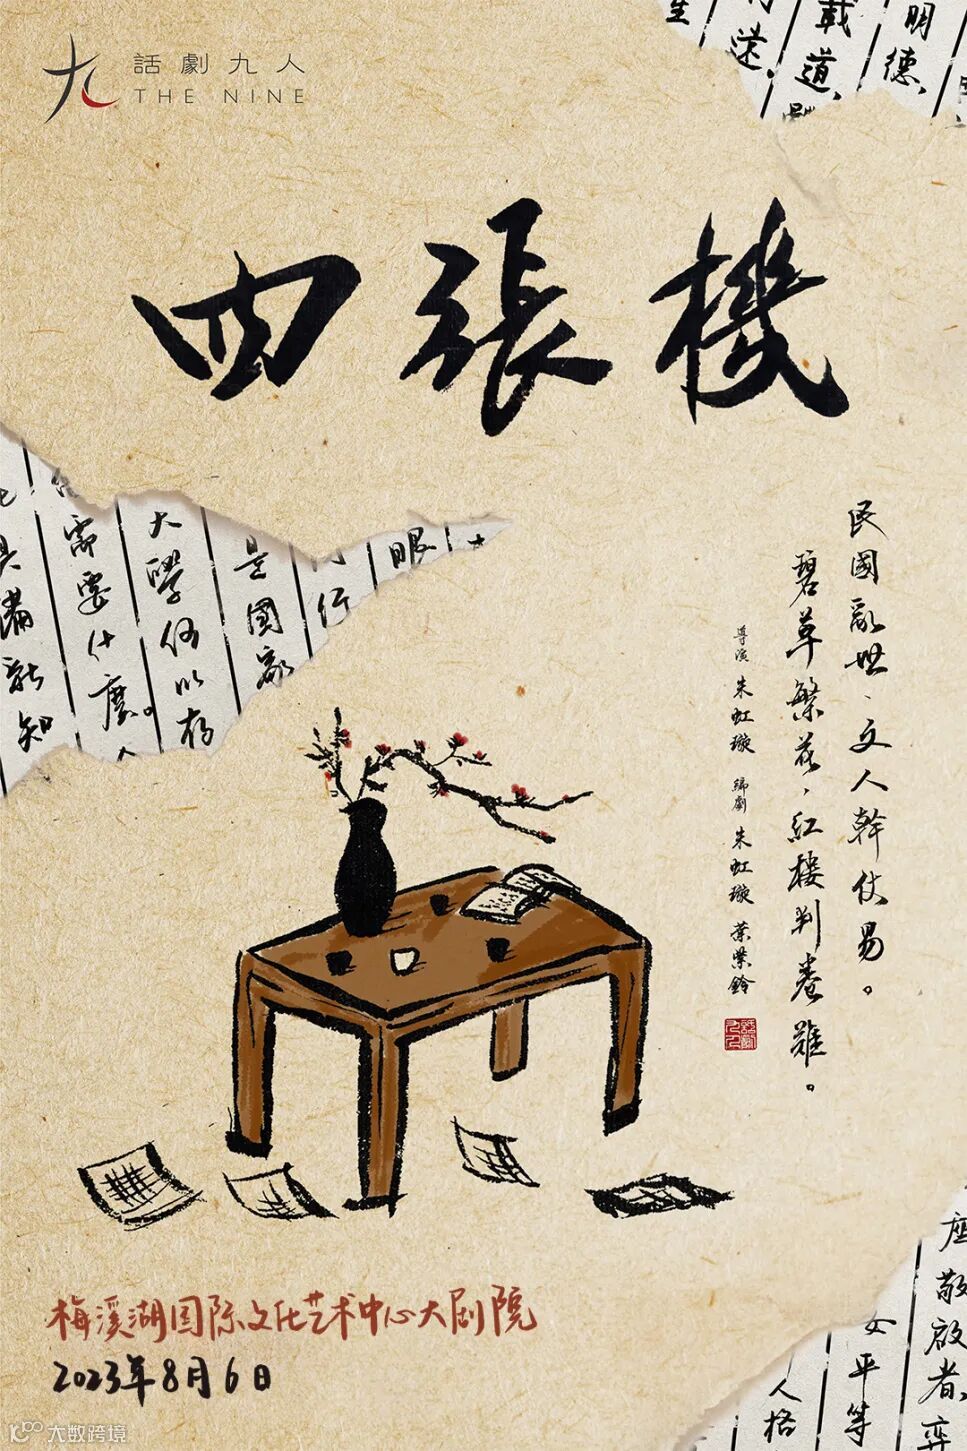 話劇九人
THE NINE
明德、
載道、
遠、
四張機
眼
是國家
大學何以存
需要什麼。人
具備新知
民國亂世、文人幹仗易。
碧草繁花,紅樓判卷難。
導演 朱虹璇 編劇 朱虹璇 葉紫鈴
梅溪湖国际文化艺术中心大剧院
2023年8月6日
座
敬啟者、弈
女平等
人格
大数跨境